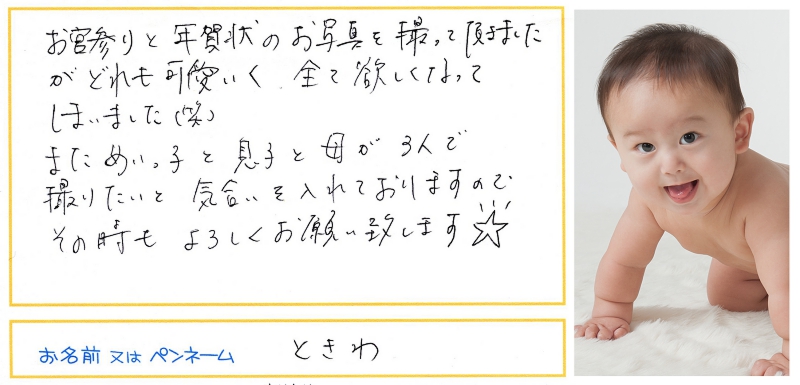 お宮参りと年賀状のお写真を撮って頂きました
がどれも可愛いく 全て欲しくなって
しまいました(笑)
まためいっ子と息子と母が3人で
撮りたいと気合いを入れておりますので
その時も よろしくお願い致します☆
お名前 又は ペンネーム ときわ